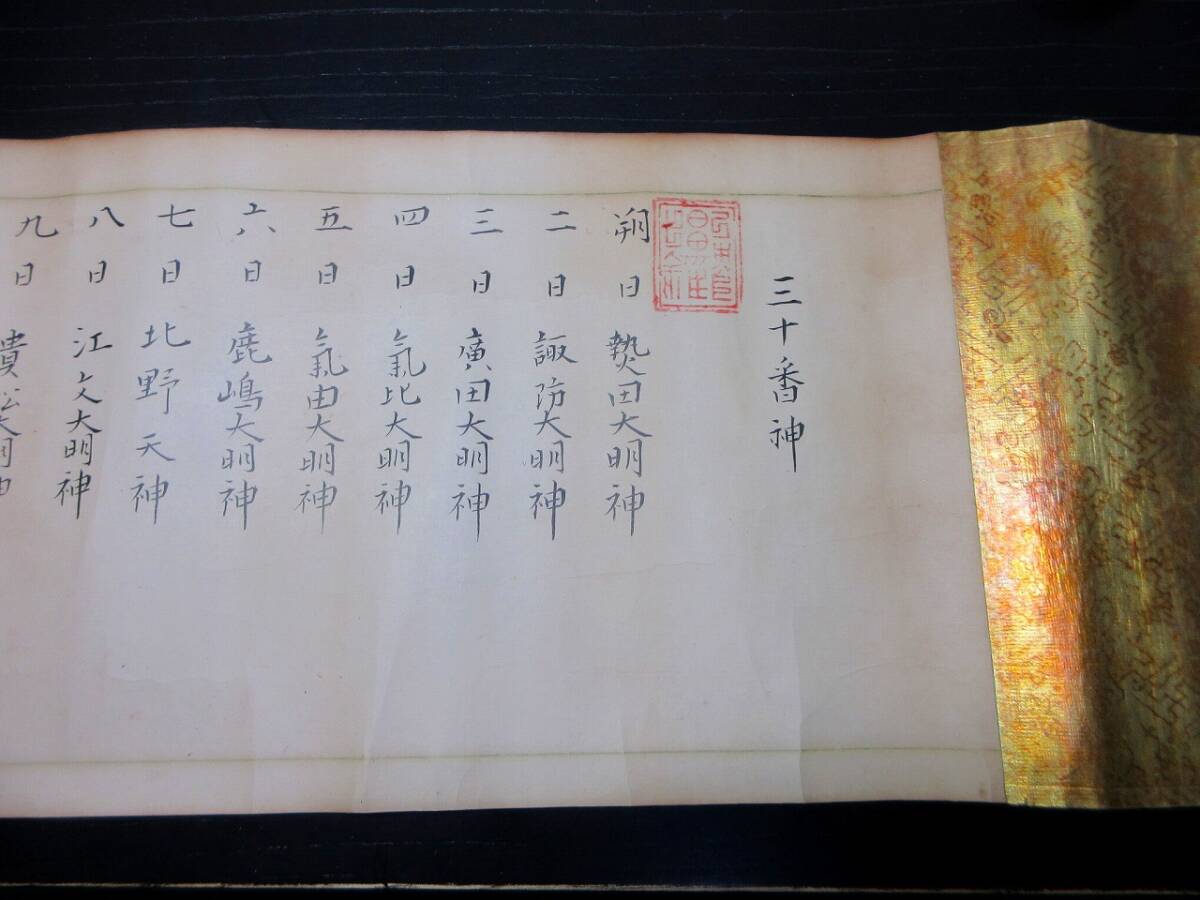 三十番神
朔日 𤍠田大明神
二日 諏防大明神
三日 廣田大明神
四日 氣比大明神
五日 氣由大明神
六日 鹿嶋大明神
七日 北野天神
八日 江文大明神
九日 貴大明神